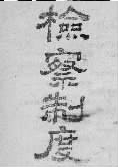 檢察制度